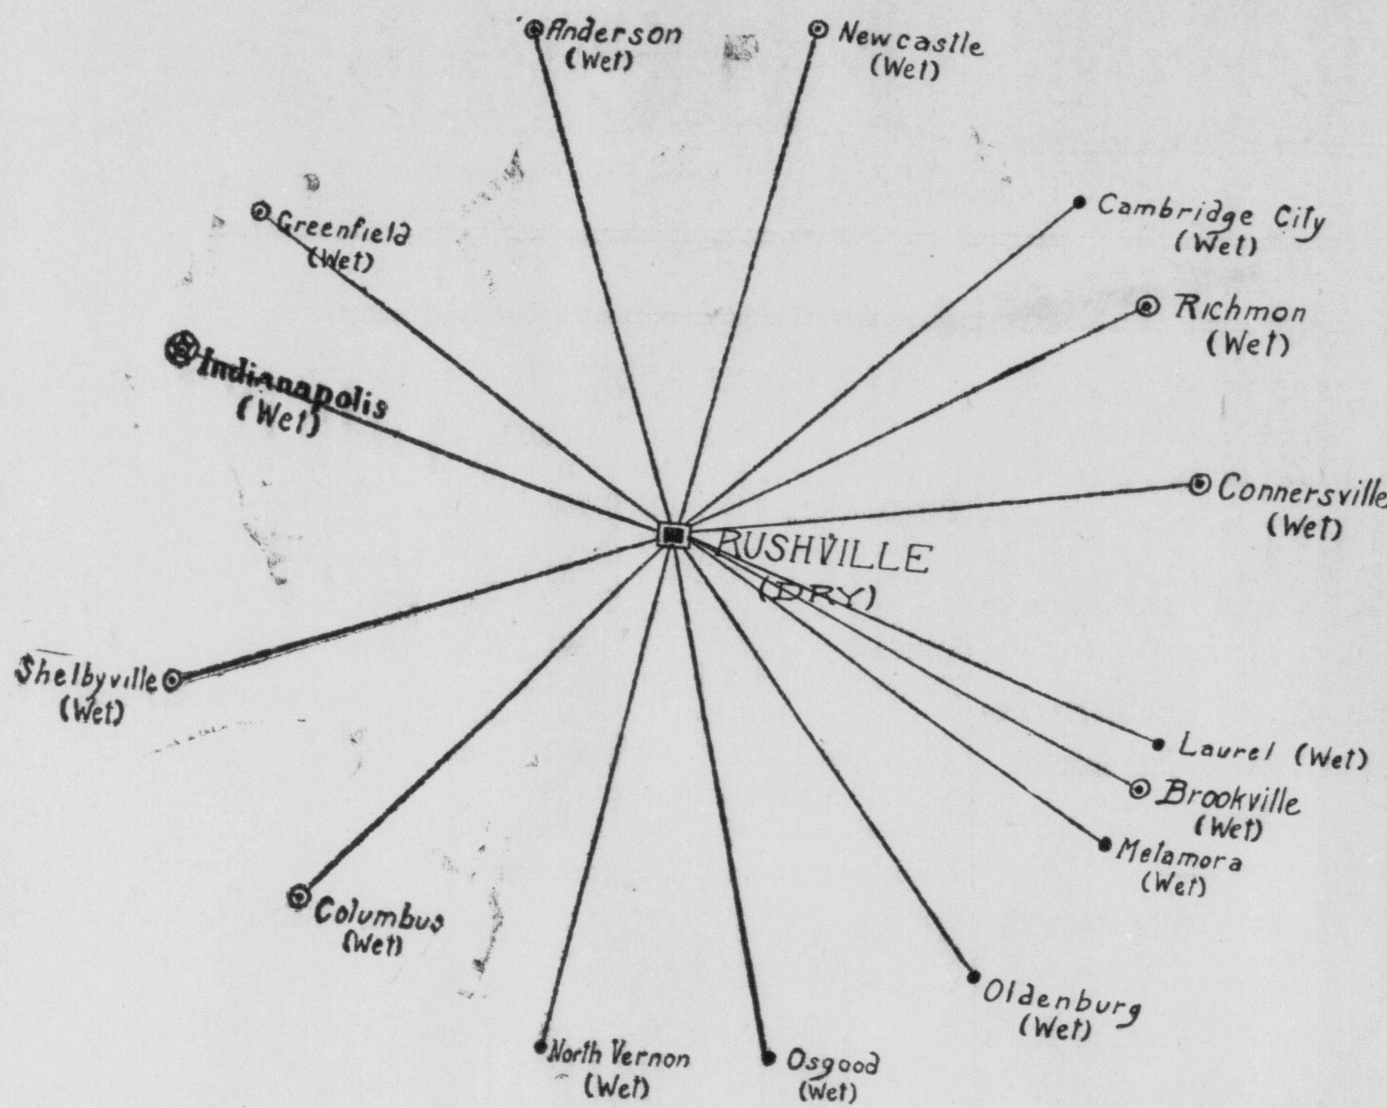 Anderson
(Wet)
Newcastle
(Wet)
Cambridge City
(Wet)
Greenfield
(Wet)
Richmon
(Wet)
Indianapolis
(Wet)
Connersville
(Wet)
RUSHVILLE
(DRY)
Shelbyville
(Wet)
Laurel (Wet)
Brookville
(Wet)
Metamora
(Wet)
Columbus
(Wet)
Oldenburg
(Wet)
North Vernon
(Wet)
Osgood
(Wet)